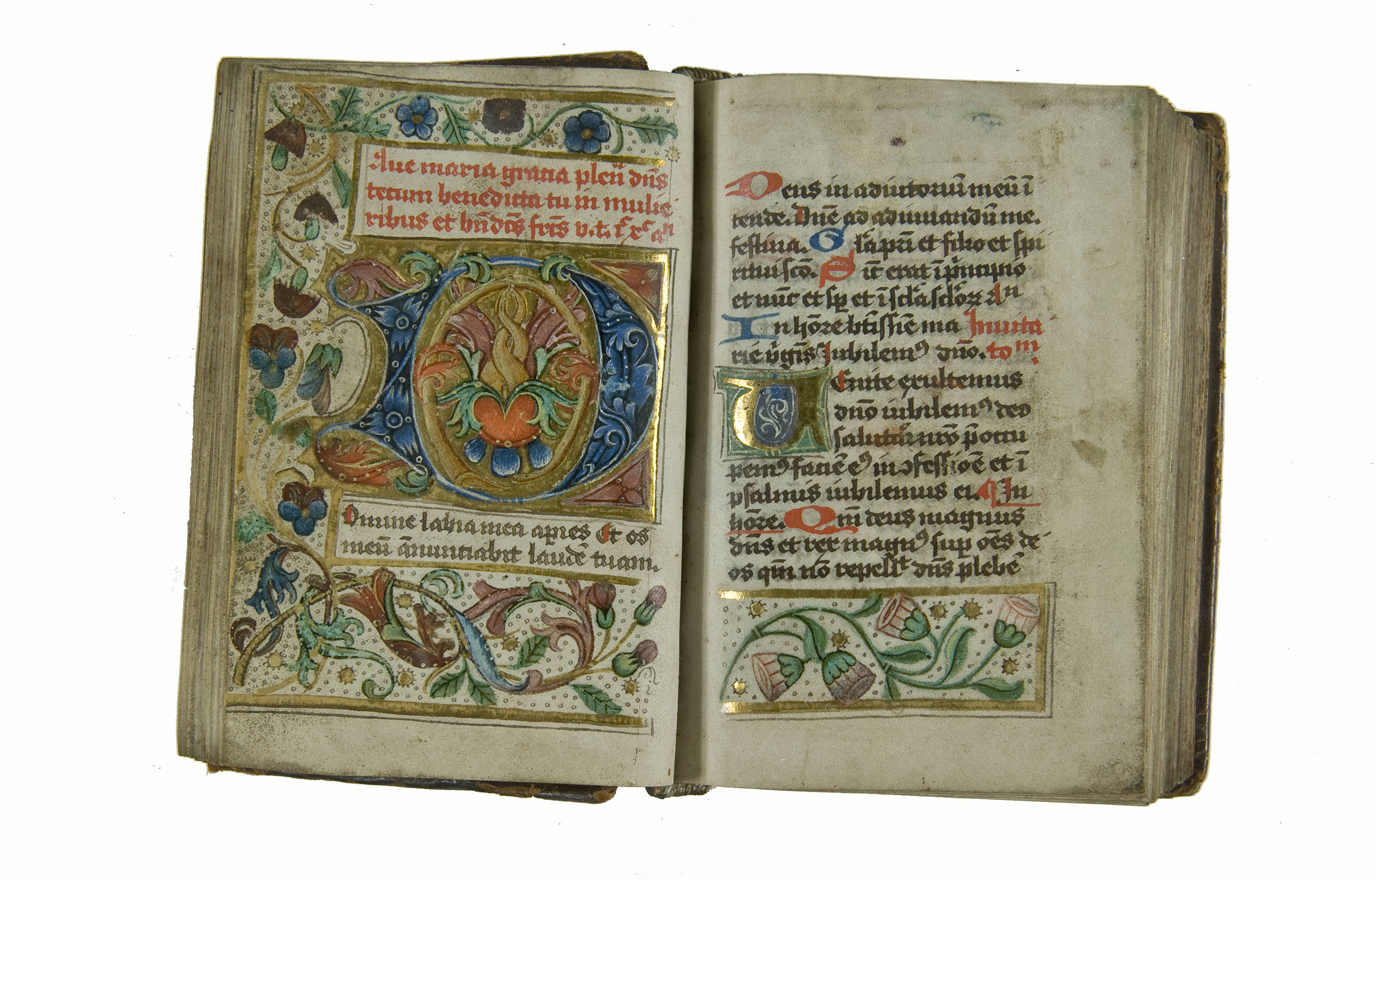 Aue maria gracia plen̄ dn̄s
tecum benedicta tu in mulie
ribus et bn̄dc̄s frc̄s v.t. iē xē an̄
Domine labia mea apries Et os
meū ānunciabit laudē tuam.
Deus in adiutoriū meū ī
tende. Dn̄e ad adiuuandū me.
festina. Gl'a patri et filio et spi
ritui scō. Sic̄ erat ī principio
et nūc et sp̄ et ī scl'a scl'orꝝ an̄
In hōre btīssīe ma Inuita
rie vgīs Iubilem9 dn̄o. tom̄
Uenite exultemus
dn̄o iubilem9 deo
salutari nr̄o p̄occu
pem9 faciē e9 in ɔfessiōe et ī
psalmis iubilemus ei. In
hōre. Qm̄ deus magnus
dn̄s et rex magn9 sup oēs de
os qm̄ nō repellt dn̄s plebē